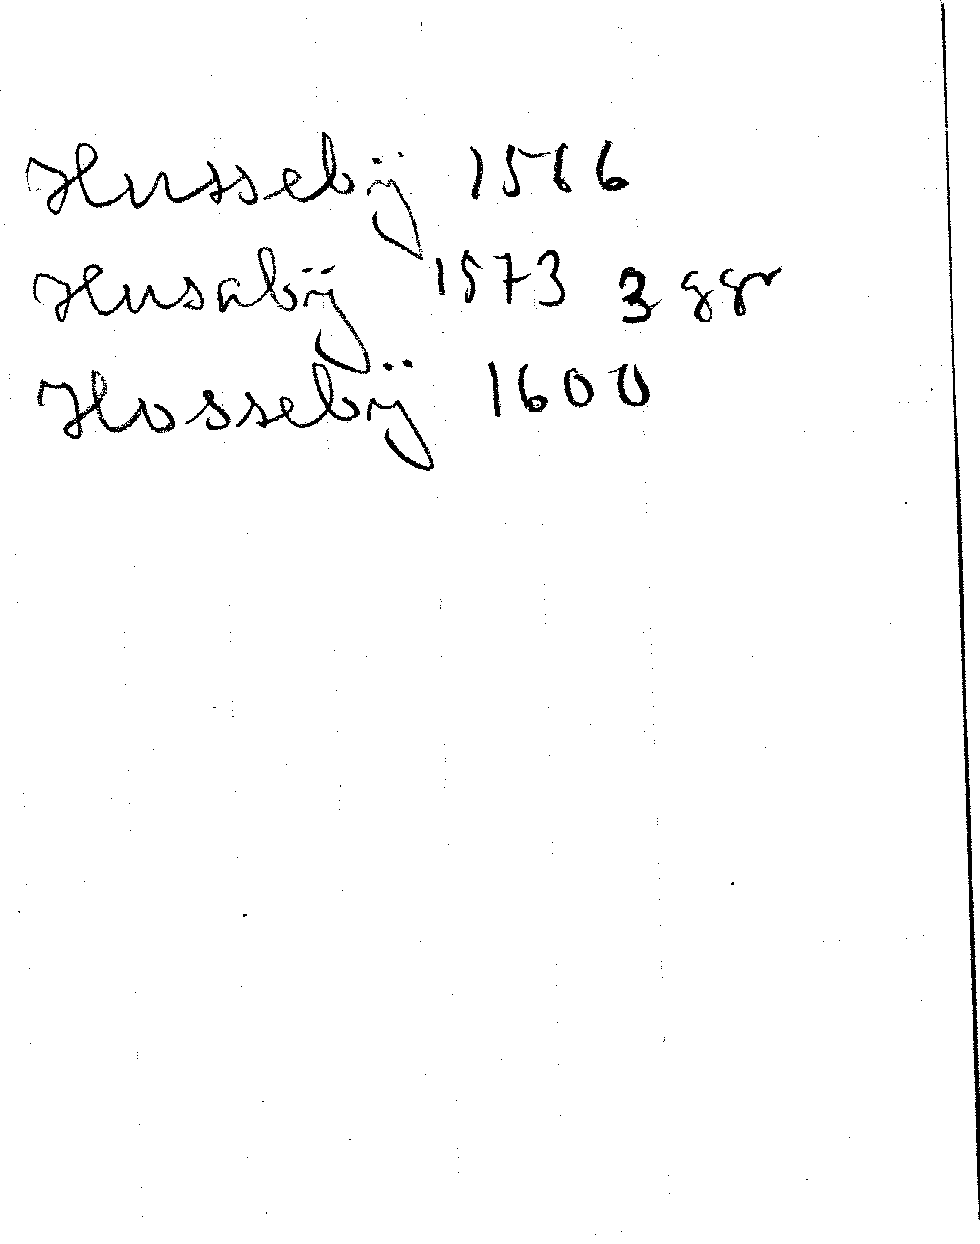 Hussebÿ 1566
Husabÿ 1573 3 ggr
Hossebÿ 1600